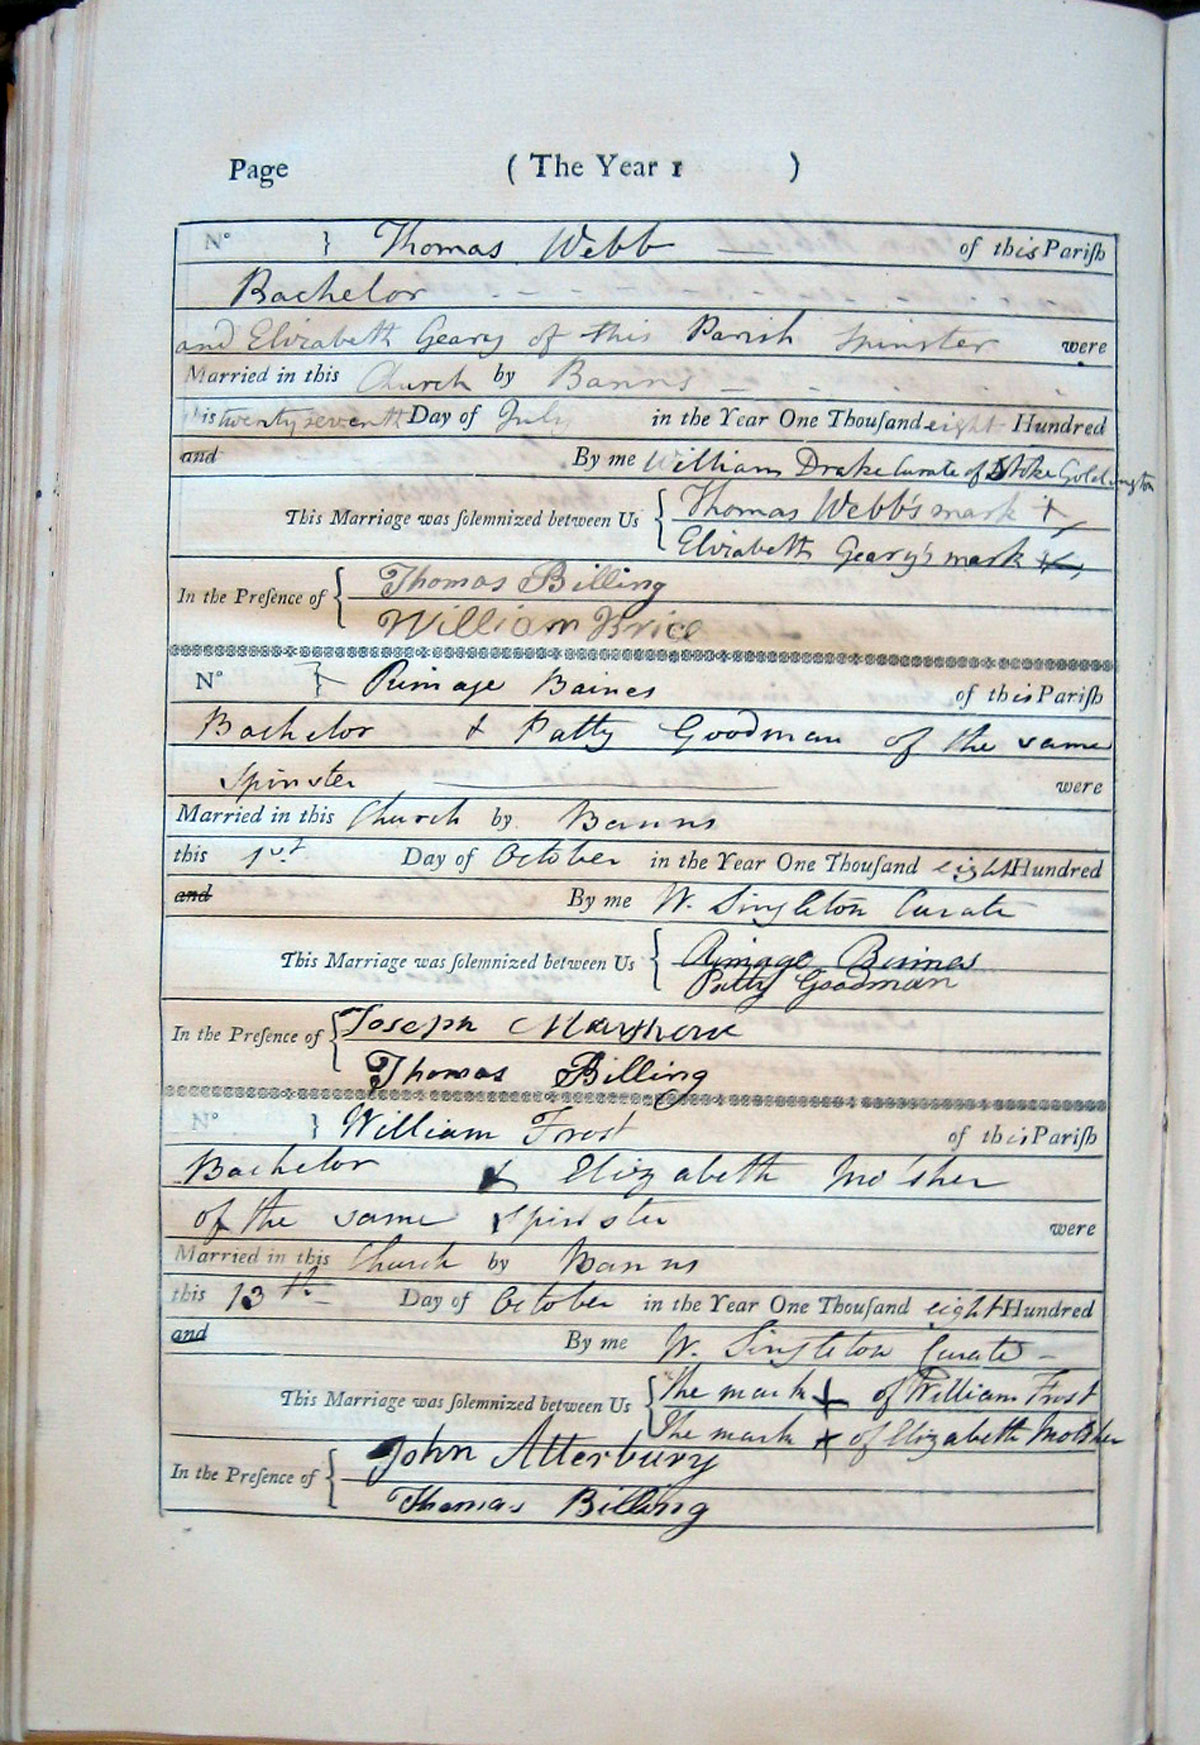 Page ( The Year 1 )
No } Thomas Webb of this Pariſh
Bachelor
and Elizabeth Geary of this Parish Spinster were
Married in this Church by Banns
this twenty seventh Day of July in the Year One Thouſand eight Hundred
and By me William Drake Curate of Stoke Goldington
This Marriage was ſolemnized between Us { Thomas Webb's mark +
Elizabeth Geary's mark +
In the Preſence of { Thomas Billing
William Brice
No } Rimage Baines of this Pariſh
Bachelor & Patty Goodman of the same
Spinster were
Married in this Church by Banns
this 1st Day of October in the Year One Thouſand eight Hundred
and By me W. Singleton Curate
This Marriage was ſolemnized between Us { Rimage Baines
Patty Goodman
In the Preſence of { Joseph
Thomas Billing
No } William Frost of this Pariſh
Bachelor & Elizabeth Mother
of the same Spinster were
Married in this Church by Banns
this 13th Day of October in the Year One Thouſand eight Hundred
and By me W. Singleton Curate
This Marriage was ſolemnized between Us { The mark + of William Frost
The mark + of Elizabeth Mother
In the Preſence of { John Atterbury
Thomas Billing